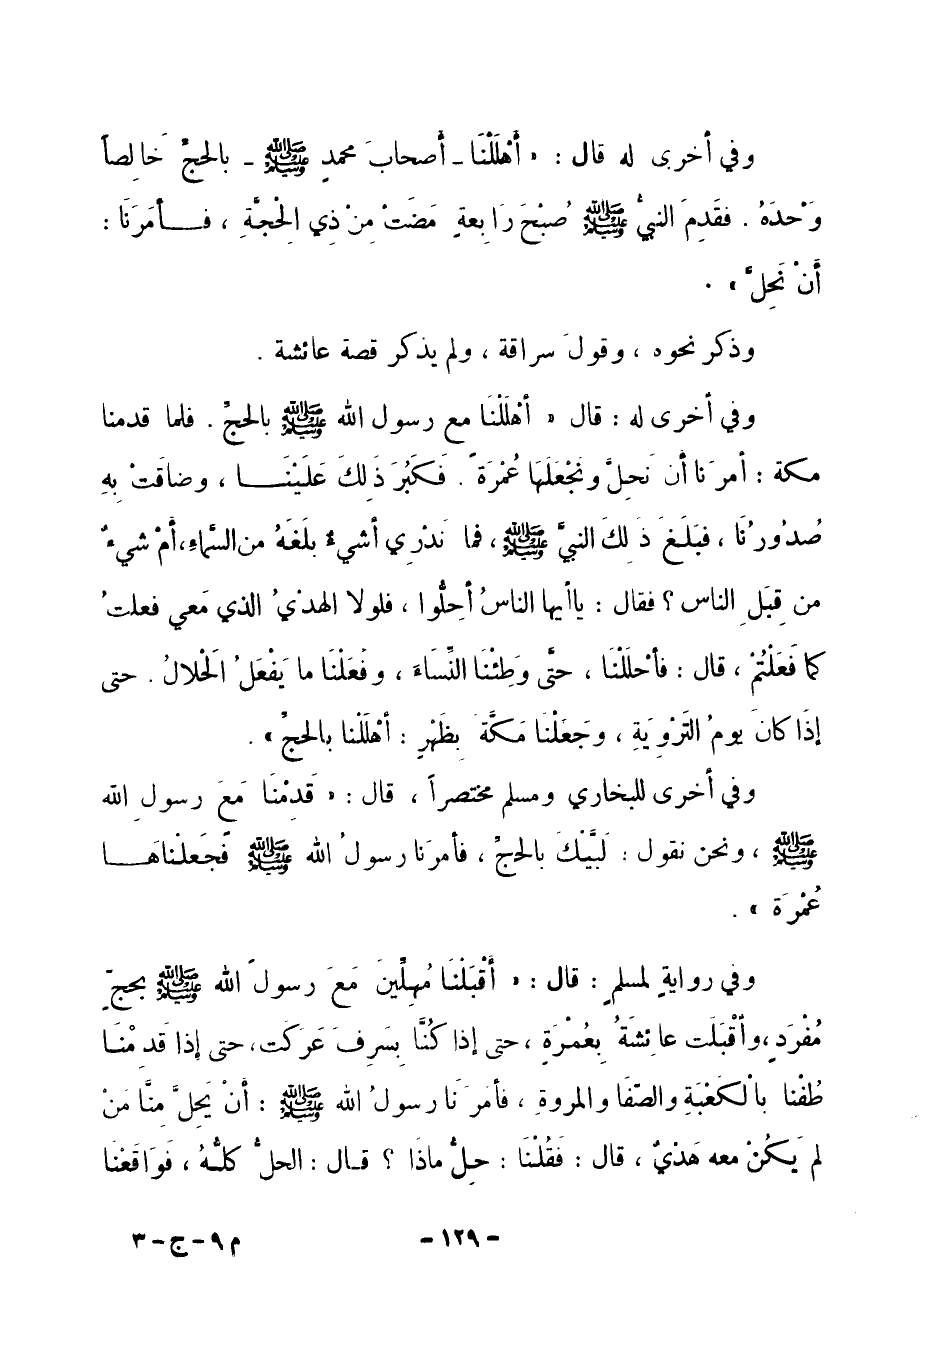 وفي أخرى له قال : « أَهْلَلْنَا ـ أصحابَ محمدٍ ﷺ ـ بالحجِّ خَالِصاً
وَحْدَهُ . فقَدِمَ النبيُّ ﷺ صُبْحَ رَابِعةٍ مَضَتْ مِنْ ذِي الْحِجَّةِ ، فـأمَرَنَا :
أَنْ نَحِلَّ » .
وذكر نحوه ، وقولَ سراقة ، ولم يذكر قصة عائشة .
وفي أخرى له : قال « أَهْلَلْنَا مع رسول الله ﷺ بالحجِّ . فلما قدمنا
مكة : أمرَنا أن نَحِلَّ ونَجْعَلَهَا عُمْرَةً . فَكَبُرَ ذَلِكَ عَلَيْنَـا ، وضاقَتْ بِهِ
صُدُورُنَا ، فبَلَغَ ذَلِكَ النبيَّ ﷺ ، فما نَدْرِي أشيءٌ بلَغَهُ من السَّماءِ، أَمْ شيءٌ
من قِبَلِ الناس ؟ فقال : يا أيها الناسُ أَحِلُّوا ، فلولا الهدْيُ الذي مَعي فعلتُ
كما فَعَلْتُمْ ، قال : فأحْلَلْنَا ، حتَّى وَطِئْنَا النِّسَاءَ ، وفَعَلْنَا ما يَفْعَلُ الْحَلالُ . حتى
إذَا كانَ يومُ التَّرْوِيَةِ ، وجَعَلْنَا مَكَّةَ بِظَهْرٍ : أهْلَلْنا بالحجِّ » .
وفي أخرى للبخاري ومسلم مختصراً ، قال : « قَدِمْنَا مَعَ رسولِ الله
ﷺ ، ونحن نقول : لَبَّيْكَ بالحجِّ ، فأمرَنا رسولُ الله ﷺ فَجَعلْنَاهَـا
عُمْرَة » .
وفي روايةٍ لمسلمٍ : قال : « أَقْبَلْنَا مُهِلِّينَ مَعَ رسول الله ﷺ بحجٍّ
مُفْرَدٍ ، وأقْبَلَت عائِشَةُ بِعُمْرَةٍ ، حتى إذا كُنَّا بِسَرِفَ عَرَكَت، حتى إذا قَدِمْنَـا
طُفْنا بِالْكَعْبَةِ والصَّفَا والمروةِ ، فأمرَنا رسولُ الله ﷺ : أَنْ يَحِلَّ مِنَّا مَنْ
لم يَكُنْ معه هَدْيٌ ، قال : فَقُلْنَا : حِلُّ ماذَا ؟ قـال : الحلُّ كلُّهُ ، فَوَاقَعْنا
- ١٢٩ -
م ٩ - ج - ٣